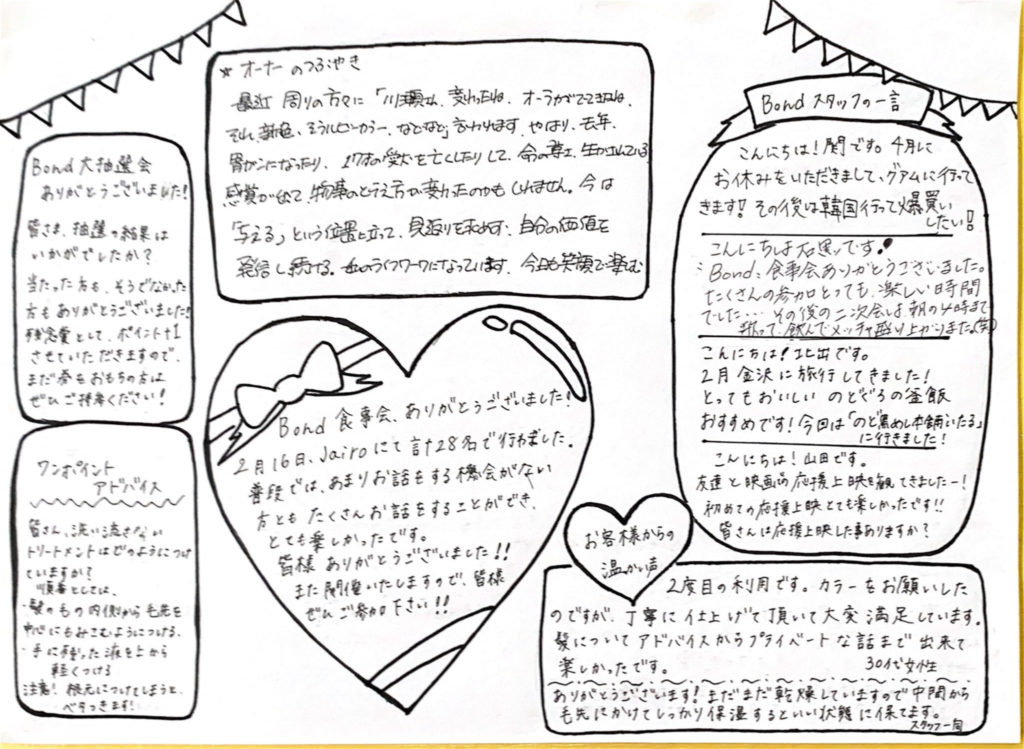 Bond 大抽選会
ありがとうございました!
皆さま、抽選の結果は
いかがでしたか?
当たった方も、そうでなかった
方もありがとうございました!
残念賞として、ポイント+1
させていただきますので、
まだ券をおもちの方は
ぜひご持参ください!
ワンポイント
アドバイス
皆さん、洗い流さない
トリートメントはどのようにつけ
ていますか?
順番としては、
・髪のもの内側から毛先を
中心にもみこむようにつける、
・手に残った液を上から
軽くつける
注意! 根元についてしまうと、
ベタつきます!
☆ オーナーのつぶやき
最近 周りの方々に「川瀬さん、変わったね、オーラがでてきたね、
それ、黄色、そうルビーカラー、などなど」言われます。やはり、去年、
胃ガンになったり、17才の愛犬を亡くしたりして、命の尊さ、生かされている
感覚が 物事のとらえ方が変わったのかもしれません。今は
「与える」という位置に立って、見返りを求めず、自分の価値を
発信し続ける。 のライフワークになっています。今日も笑顔で楽む
Bond 食事会、ありがとうございました!
2月16日、Jairoにて計28名で行われました。
普段では、あまりお話をする機会がない
方とも たくさんお話をすることができ、
とても楽しかったです。
皆様 ありがとうございました!!
また開催いたしますので、皆様
ぜひご参加下さい!!
Bond スタッフの一言
こんにちは!関です。4月に
お休みをいただきまして、グアムに行って
きます!! その後は韓国行って爆買い
したい!!
こんにちは石黒です!
Bond、食事会ありがとうございました。
たくさんの参加とっても、楽しい時間
でした… その後の二次会は、朝の4時まで
歌って、飲んでメッチャ盛り上がりました(笑)
こんにちは!北出です。
2月 金沢に旅行してきました!
とってもおいしい のどぐろの釜飯
おすすめです!今回は「のど黒めし本舗いたる」
に行きました!
こんにちは!山田です。
友達と映画の応援上映を観てきましたー!
初めての応援上映とても楽しかったです!!
皆さんは応援上映した事ありますか?
お客様からの
温かい声
2度目の利用です。カラーをお願いした
のですが、丁寧に仕上げて頂いて大変満足しています。
髪についてアドバイスからプライベートな話まで出来て
楽しかったです。
30代女性
ありがとうございます!まだまだ乾燥していますので中間から
毛先にかけてしっかり保湿するといい状態に保てます。
スタッフ一同